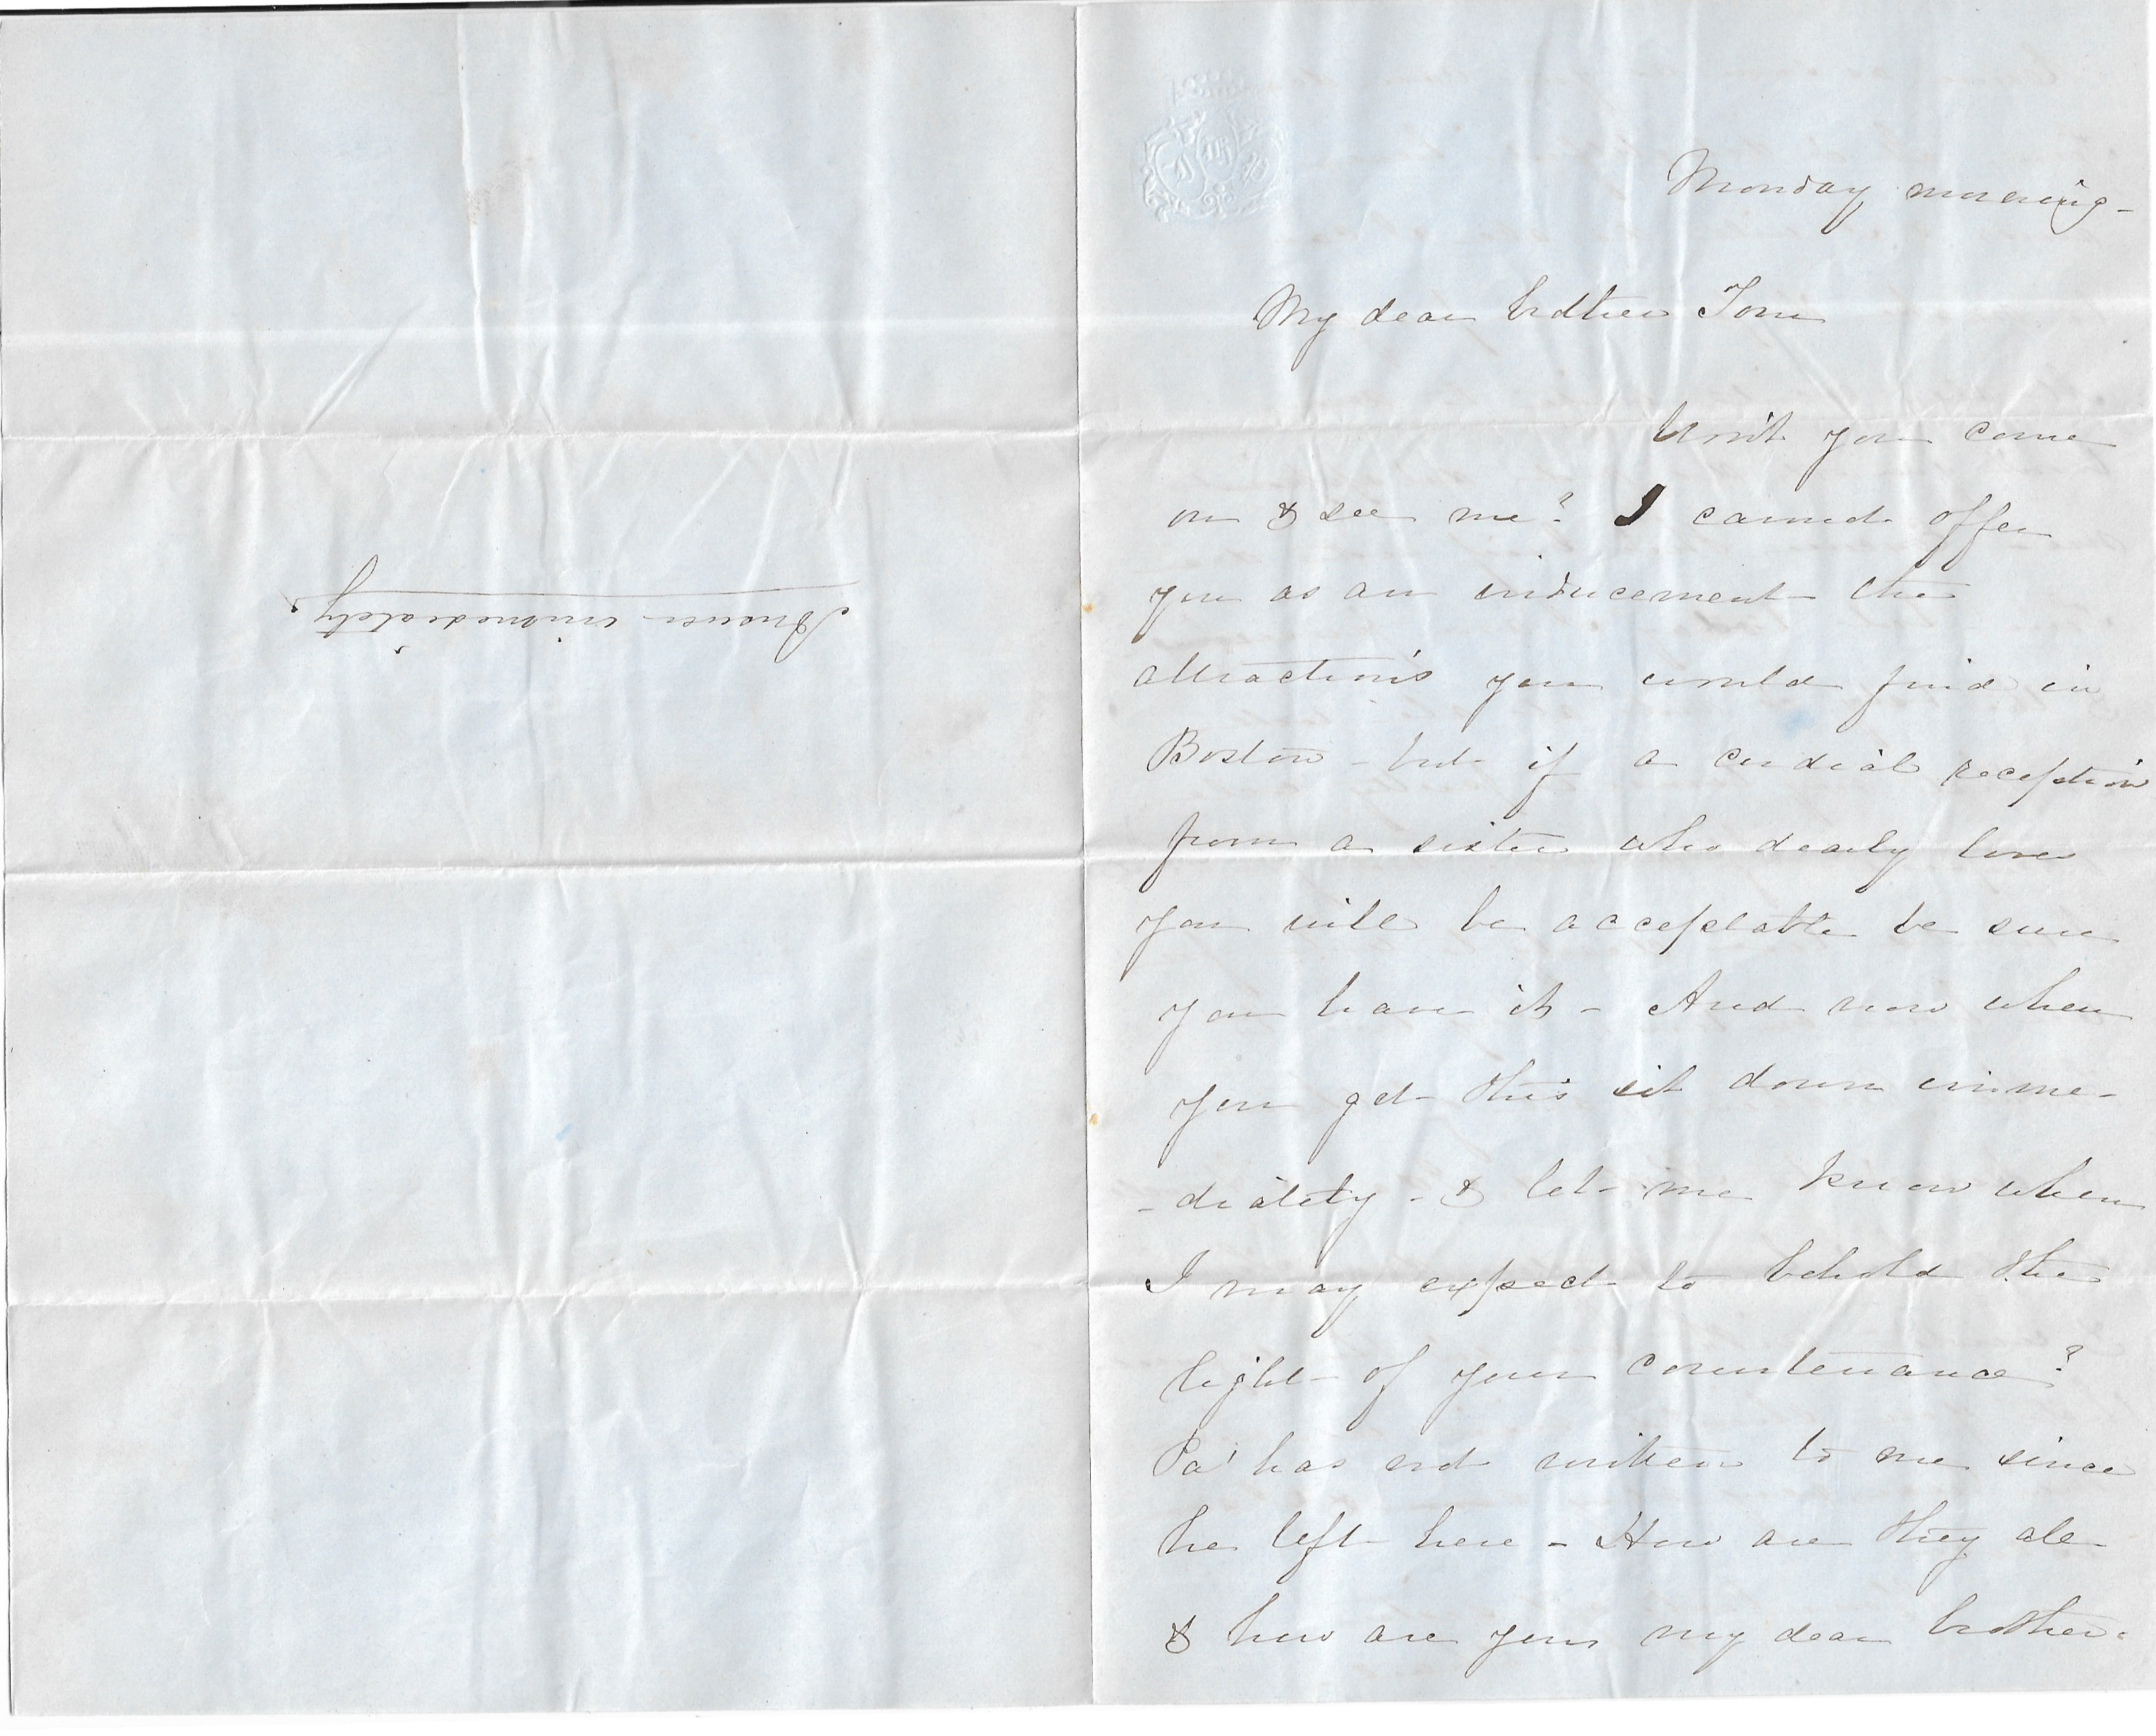 Monday morning -
My dear brother Tom
Won't you come
on & see me? I cannot offer
you as an inducement the
attractions you would find in
Boston - but if a cordial reception
from a sister who dearly loves
you will be acceptable be sure
you have it - And now when
you get this sit down imme-
-diately - & let me know when
I may expect to behold the
light of your countenance?
Pa' has not written to me since
he left here - How are they all
& how are you my dear brother.
Answer immediately.